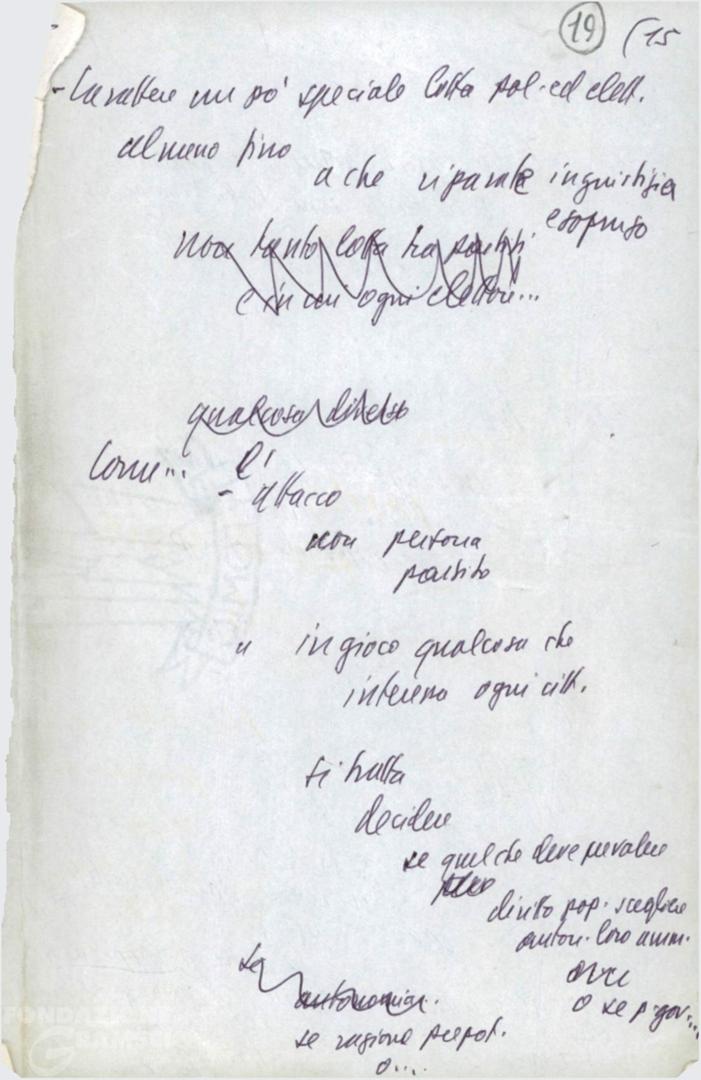 19 (15
- Carattere un po' speciale lotta pol. ed elett.
almeno fino
a che riparata ingiustizia
e sopruso
non tanto lotta tra partiti
e in cui ogni elettore...
qualcosa diverso
Come... l'
- attacco
non persona
partito
in gioco qualcosa che
interessa ogni citt.
si tratta
decidere
se quel che deve prevalere
diritto pop. scegliere
auton. loro amm.
o se p. gov...
se
autonomia.
se ragione prepot.
o....
FONDAZIONE
GRAMSCI